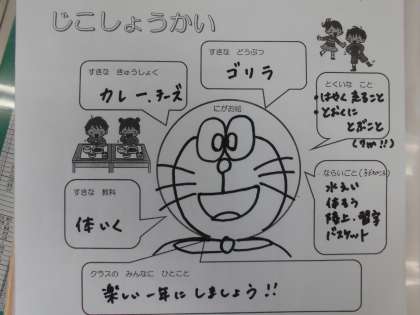 じこしょうかい
すきな きゅうしょく
カレー、チーズ
すきな どうぶつ
ゴリラ
とくいな こと
・はやく走ること
・とおくに
とぶこと
(7m!!)
にがお絵
すきな 教科
体いく
ならいごと
水えい
体そう
陸上、習字
バスケット
クラスの みんなに ひとこと
楽しい一年にしましょう!!